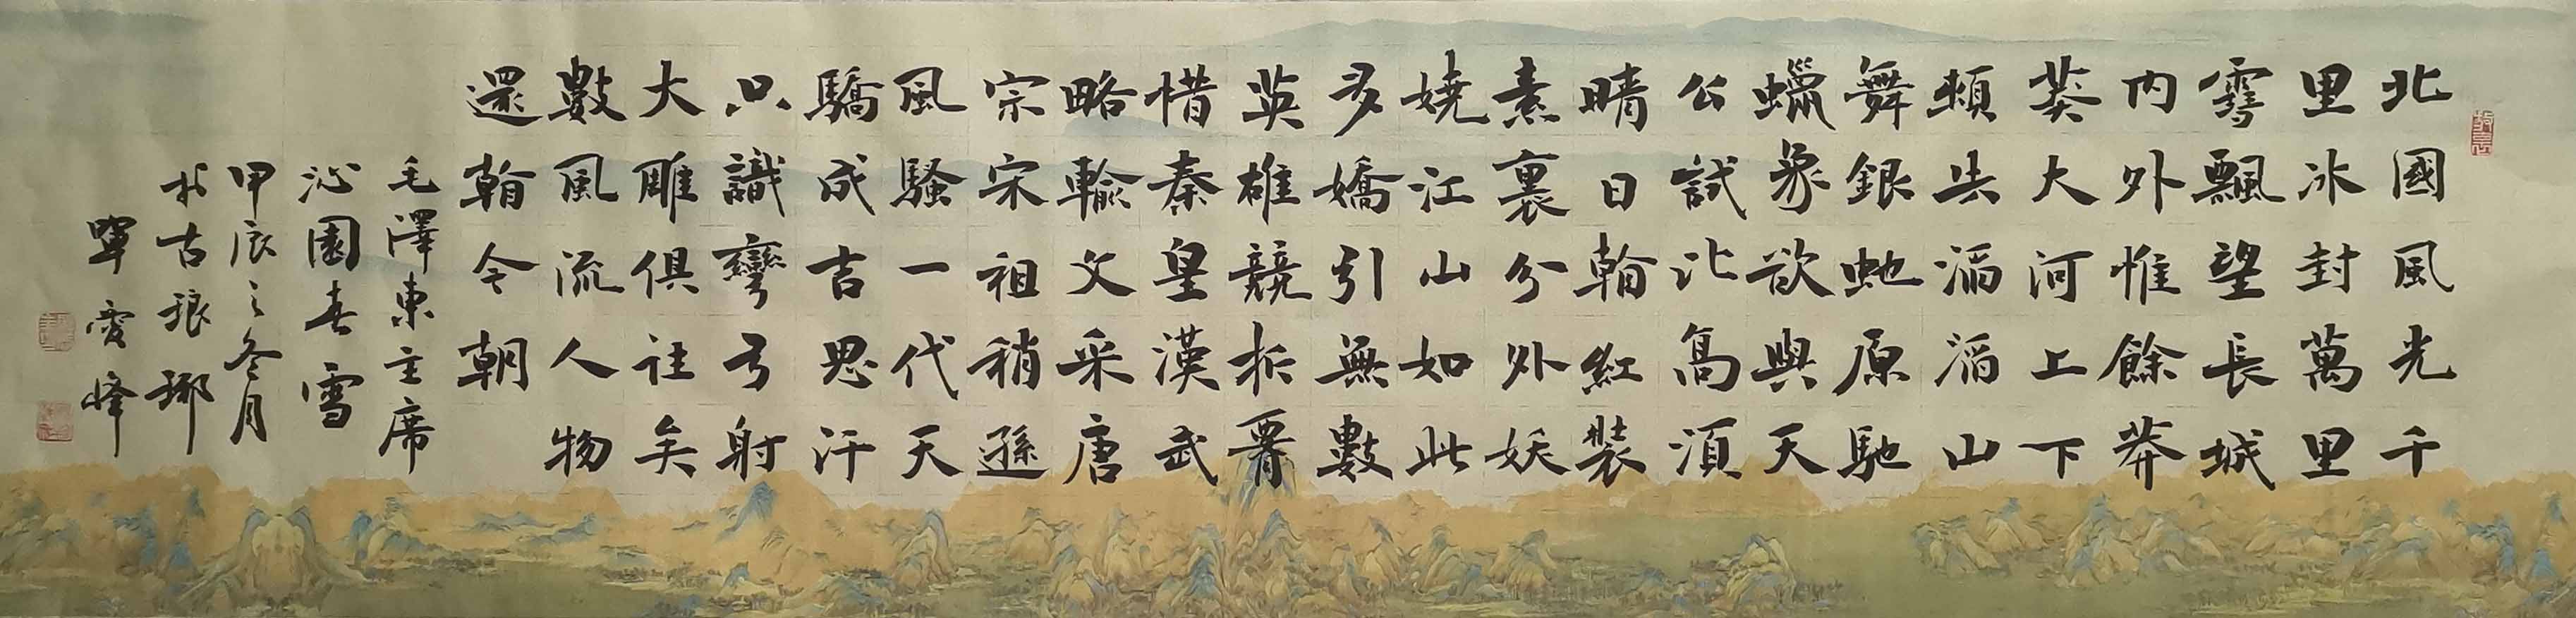 北國風光千
里冰封萬里
雪飄望長城
内外惟餘莽
莽大河上下
頓失滔滔山
舞銀蛇原馳
蠟象欲與天
公試比高須
晴日看紅裝
素裹分外妖
嬈江山如此
多嬌引無數
英雄競折腰
惜秦皇漢武
略輸文采唐
宗宋祖稍遜
風騷一代天
驕成吉思汗
只識彎弓射
大雕俱往矣
數風流人物
還看今朝
毛澤東主席
沁園春雪
甲辰之冬月
於古琅琊
單愛峰